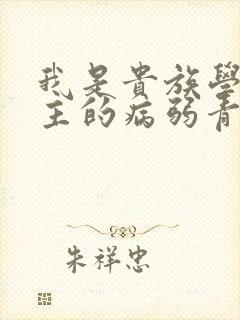 我是貴族學
主的病弱青
朱祥忠